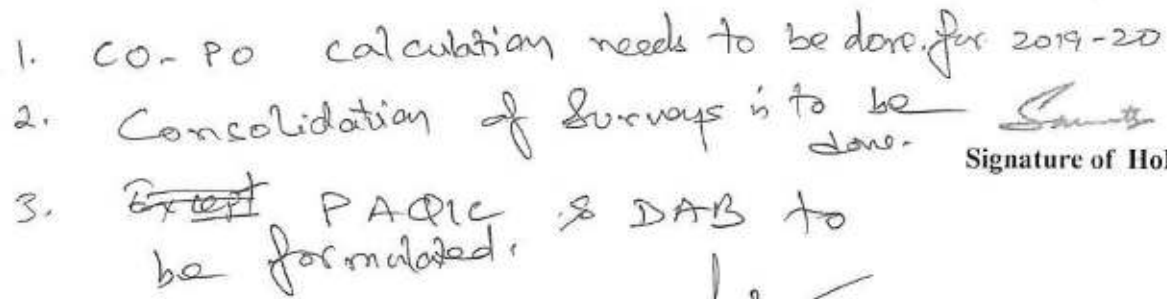 1. CO-PO calculation needs to be done. for 2019-20
2. Consolidation of Surveys is to be
done.
Signature of HoD
3. Except PAQIC & DAB to
be formulated.